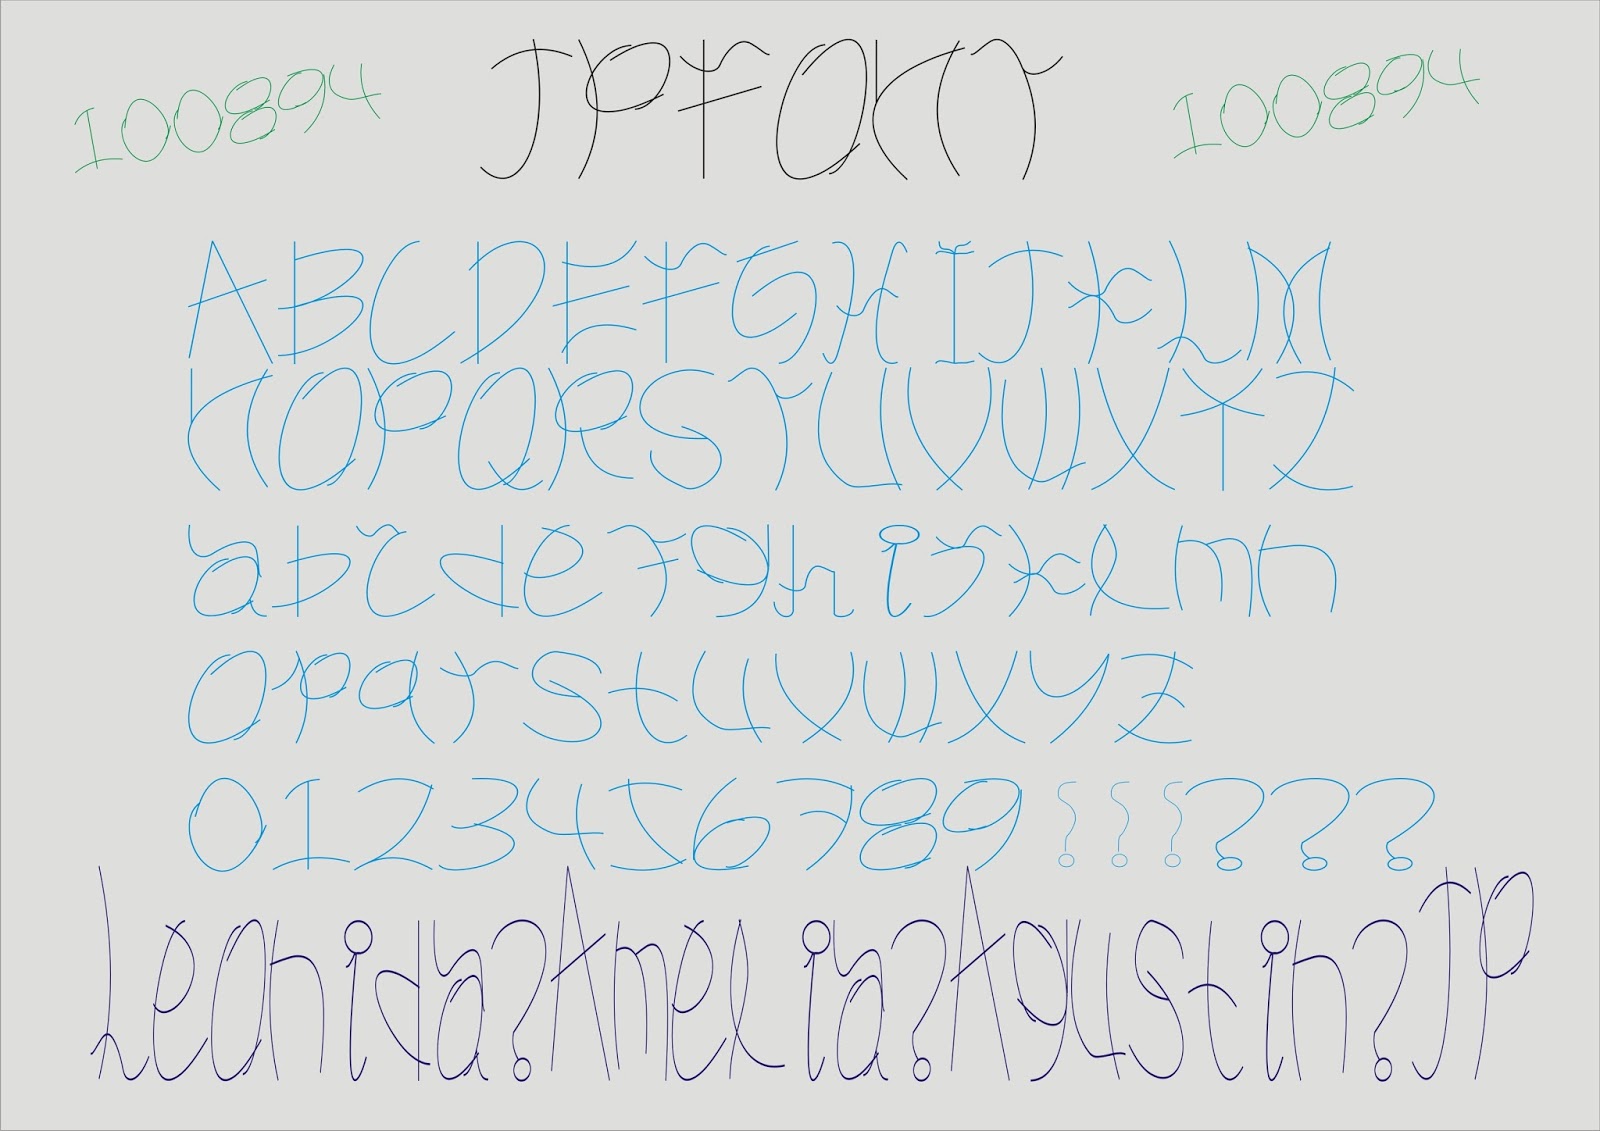 100894 JPFONT 100894
ABCDEFGHIJKLM
NOPQRSTUVWXYZ
abcdefghijklmn
opqrstuvwxyz
0123456789!!!???
Leonida?Amelia?Agustin?JP